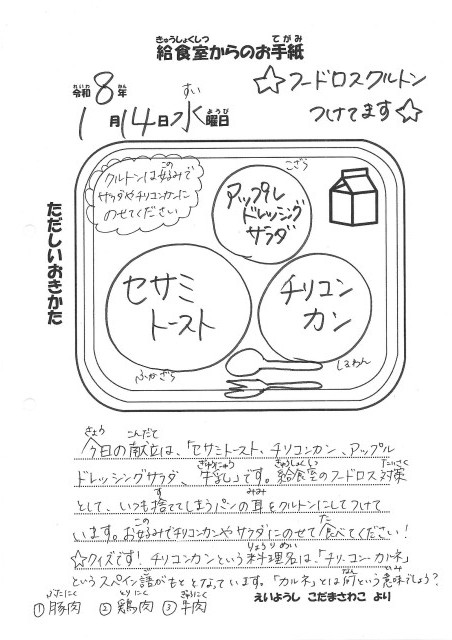 きゅうしょくしつ てがみ
給食室からのお手紙
れいわ ねん
令和8年
すい ようび
1月14日水曜日
☆フードロスクルトン
つけてます☆
この
クルトンは好みで
サラダやチリコンカンに
のせてください
こざら
アップル
ドレッシング
サラダ
ただしいおきかた
セサミ
トースト
チリコン
カン
ふかざら
しるわん
きょう こんだて
今日の献立は、「セサミトースト、チリコンカン、アップル
ぎゅうにゅう きゅうしょくしつ たいさく
ドレッシングサラダ、牛乳」です。給食室のフードロス対策
す みみ
として、いつも捨ててしまうパンの耳をクルトンにしてつけて
この た
います。お好みでチリコンカンやサラダにのせて食べてください！
りょうりめい
☆クイズです！チリコンカンという料理名は、「チリ・コン・カルネ」
ご なん いみ
というスペイン語がもととなっています。「カルネ」とは何という意味でしょう？
ぶたにく とりにく ぎゅうにく
①豚肉 ②鶏肉 ③牛肉
えいようし こだまさわこ より